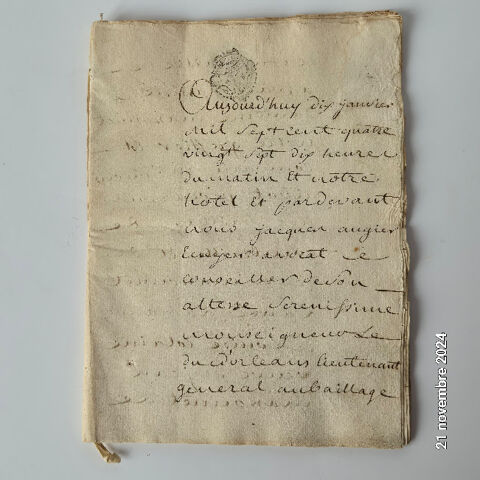 Aujourd'huy dix janvier
mil sept cent quatre
vingt sept dix heures
du matin Et notre
hotel Et pardevant
nous jacques augier
Ecuyer avocat Le
conseiller de son
altesse Serenissime
monseigneur Le
duc d'orleans lieutenant
general au bailliage
21 novembre 2024